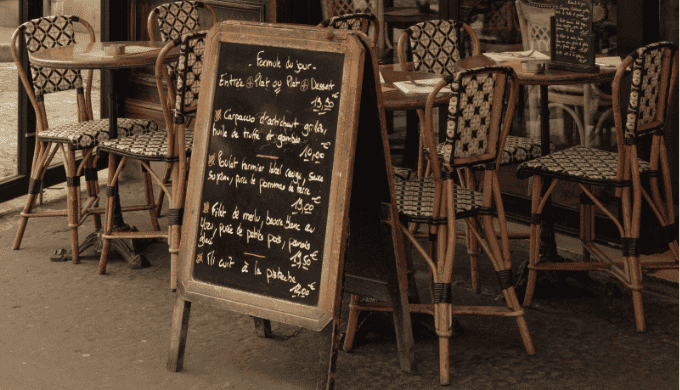 - Formule du jour -
Entrée ⊕ Plat ou Plat ⊕ Dessert
19,90€
Carpaccio d'artichaut grillés,
huile de truffe et gambas
10,00€
Poulet fermier label rouge, sauce
suprême, purée de pomme de terre
19,00€
Filet de merlu, beurre blanc au
Yuzu, purée de patates , panais
glacé
19,50€
cuit à la pistache
12,00€